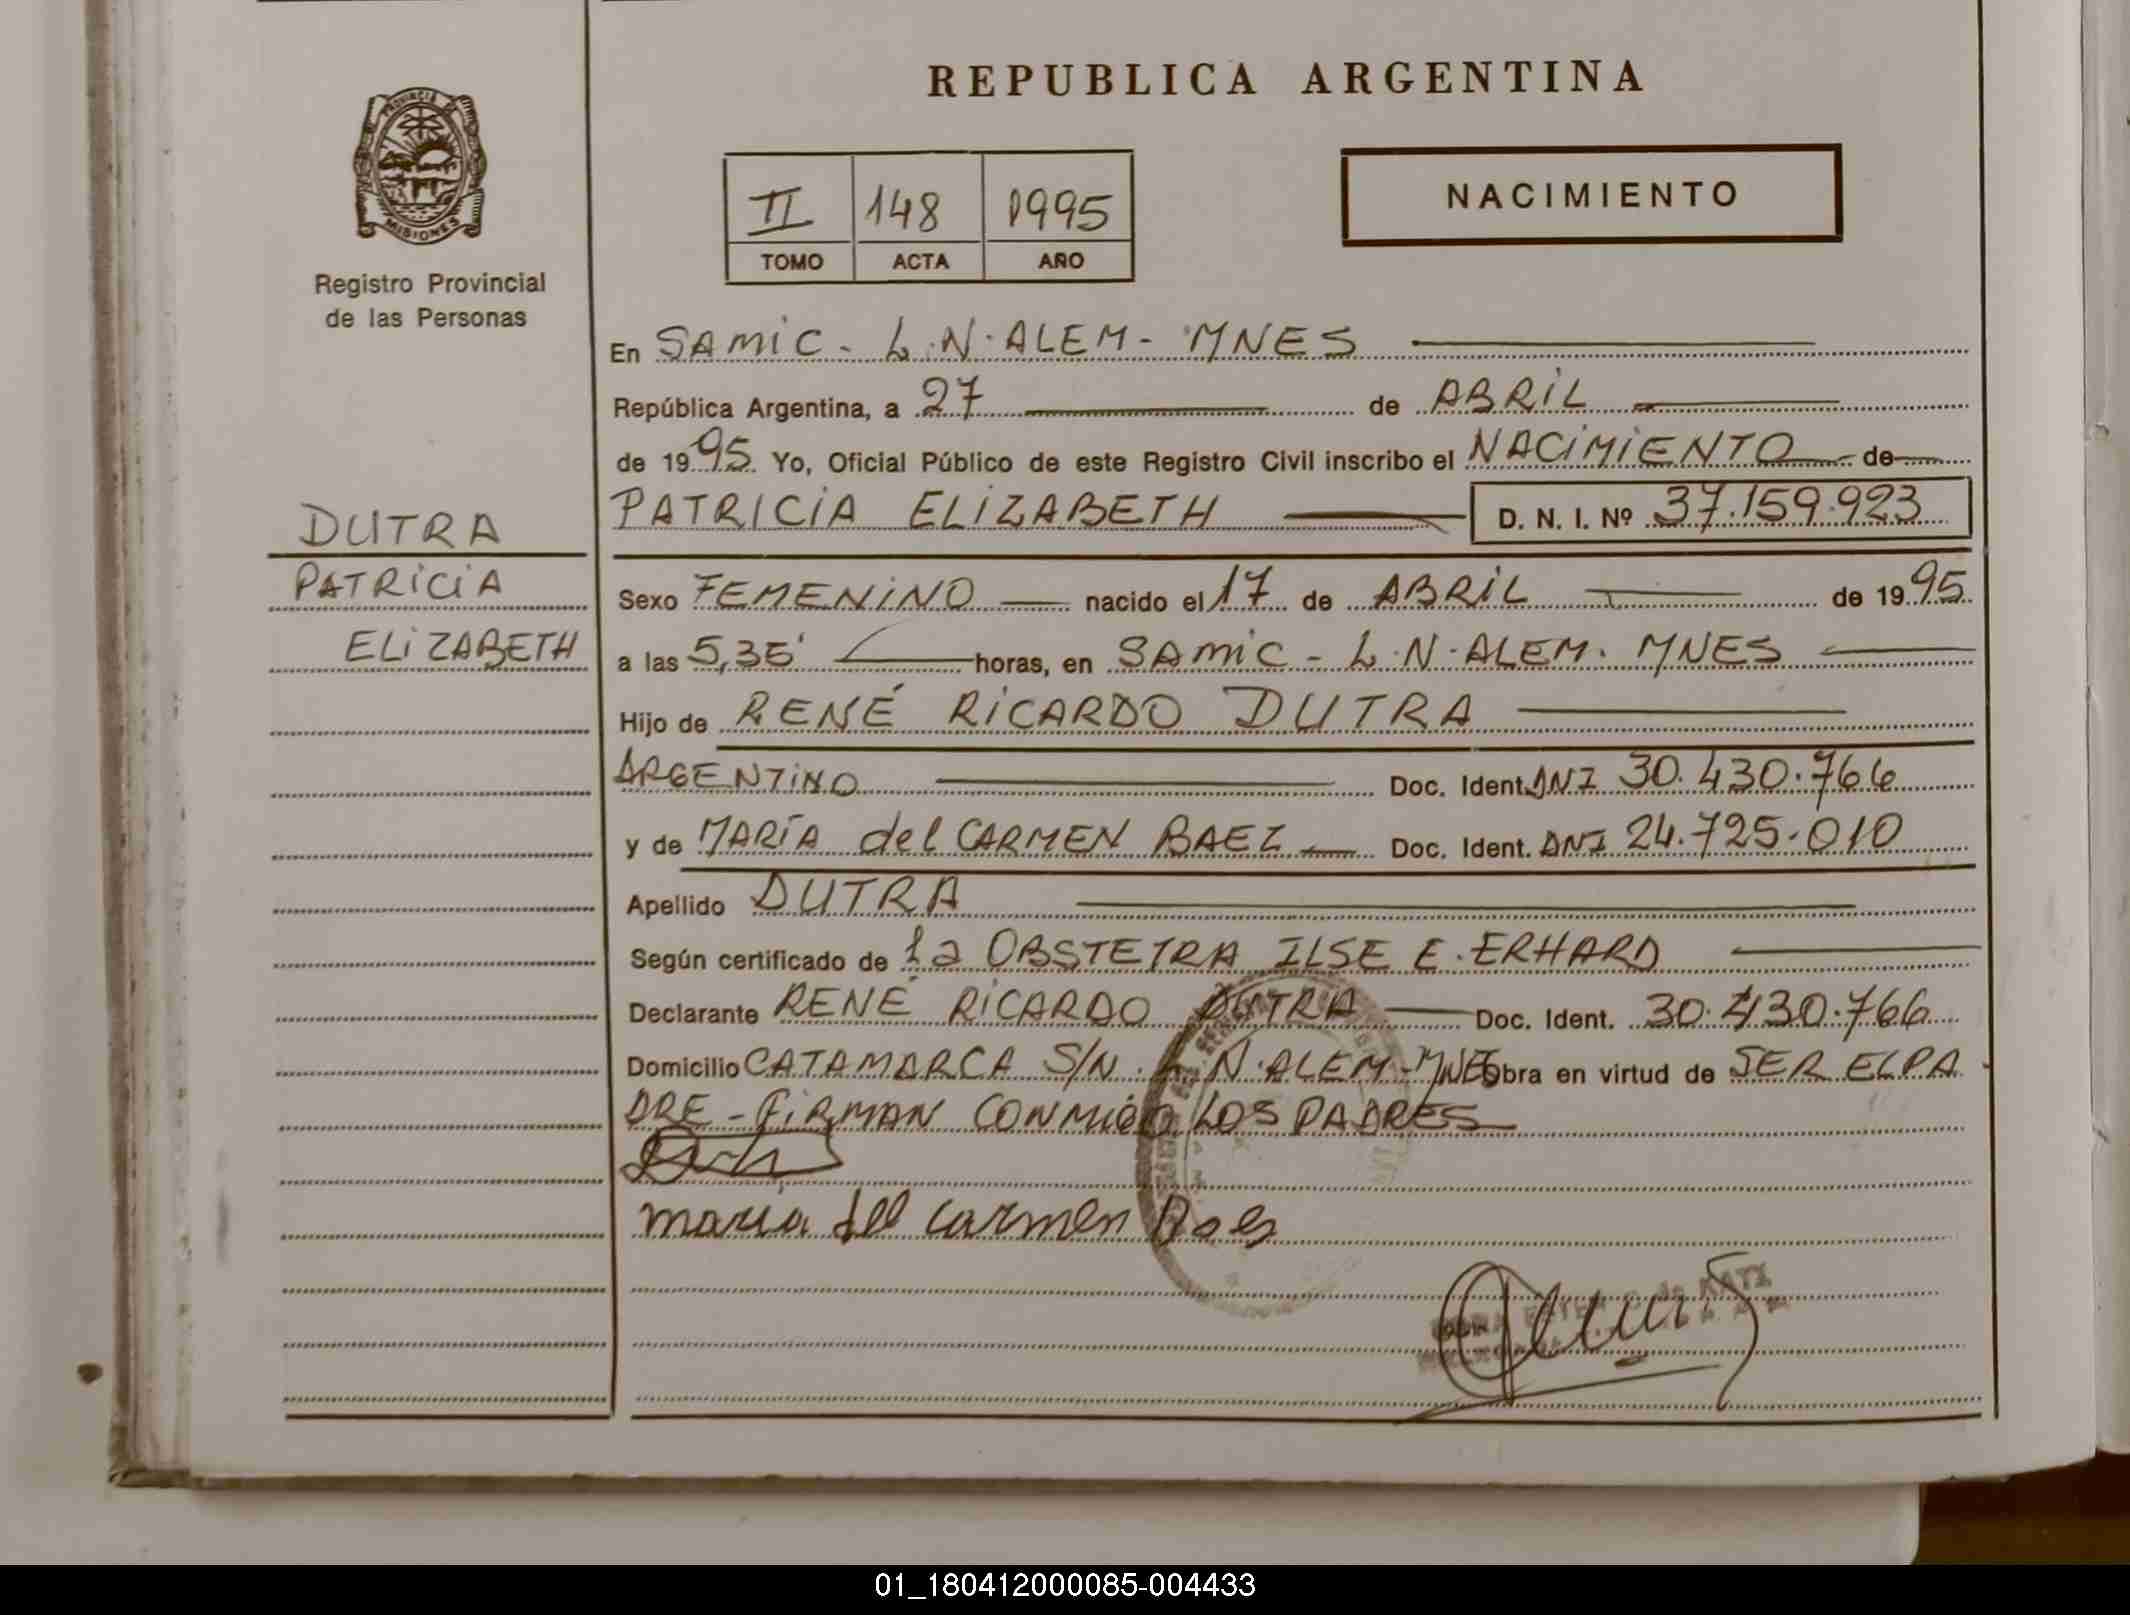 REPUBLICA ARGENTINA
PROVINCIA DE
MISIONES
Registro Provincial
de las Personas
II 148 1995
TOMO ACTA AÑO
NACIMIENTO
En SAMIC - L.N. ALEM - MNES
República Argentina, a 27 de ABRIL
de 1995. Yo, Oficial Público de este Registro Civil inscribo el NACIMIENTO de
PATRICIA ELIZABETH D. N. I. Nº 37.159.923
DUTRA
PATRICIA
ELIZABETH
Sexo FEMENINO nacido el 17 de ABRIL de 1995.
a las 5,35' horas, en SAMIC - L.N. ALEM. MNES
Hijo de RENÉ RICARDO DUTRA
ARGENTINO Doc. Ident. DNI 30.430.766
y de MARÍA del CARMEN BAEZ Doc. Ident. DNI 24.725.010
Apellido DUTRA
Según certificado de la OBSTETRA ILSE E. ERHARD
Declarante RENÉ RICARDO DUTRA Doc. Ident. 30.430.766
Domicilio CATAMARCA S/N. L.N. ALEM - MNES obra en virtud de SER EL PA
DRE - FIRMAN CONMIGO LOS PADRES
maria del carmen
01_180412000085-004433